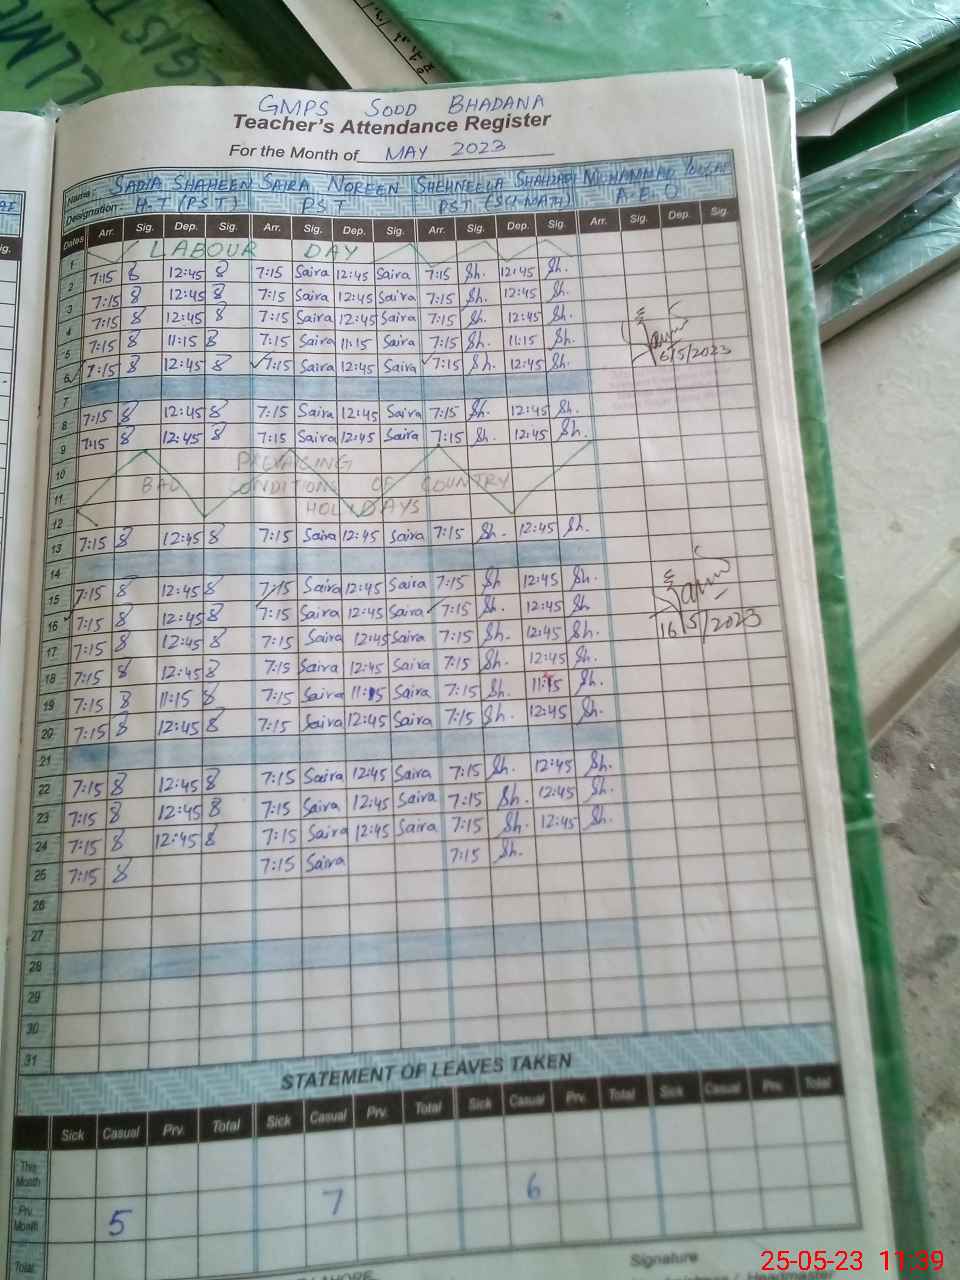 GMPS SOOD BHADANA
Teacher's Attendance Register
For the Month of MAY 2023
Name: SADIA SHAHEEN SAIRA NOREEN SHEHNEELA SHAHZADI MUHAMMAD
Designation: H.T (PST) PST PST (SCI-MATH) A.E.O
Dates Arr. Sig. Dep. Sig. Arr. Sig. Dep. Sig. Arr. Sig. Dep. Sig. Arr. Sig. Dep. Sig.
1 LABOUR DAY
2 7:15 12:45 7:15 Saira 12:45 Saira 7:15 Sh. 12:45 Sh.
3 7:15 12:45 7:15 Saira 12:45 Saira 7:15 Sh. 12:45 Sh.
4 7:15 12:45 7:15 Saira 12:45 Saira 7:15 Sh. 12:45 Sh.
5 7:15 11:15 7:15 Saira 11:15 Saira 7:15 Sh. 11:15 Sh.
6 7:15 12:45 7:15 Saira 12:45 Saira 7:15 Sh. 12:45 Sh. 6/5/2023
7
8 7:15 12:45 7:15 Saira 12:45 Saira 7:15 Sh. 12:45 Sh.
9 7:15 12:45 7:15 Saira 12:45 Saira 7:15 Sh. 12:45 Sh.
10 PREVAILING
11 BAD CONDITIONS OF COUNTRY
12 HOLIDAYS
13 7:15 12:45 7:15 Saira 12:45 Saira 7:15 Sh. 12:45 Sh.
14
15 7:15 12:45 7:15 Saira 12:45 Saira 7:15 Sh 12:45 Sh.
16 7:15 12:45 7:15 Saira 12:45 Saira 7:15 Sh. 12:45 Sh 16/5/2023
17 7:15 12:45 7:15 Saira 12:45 Saira 7:15 Sh. 12:45 Sh.
18 7:15 12:45 7:15 Saira 12:45 Saira 7:15 Sh. 12:45 Sh.
19 7:15 11:15 7:15 Saira 11:15 Saira 7:15 Sh. 11:15 Sh.
20 7:15 12:45 7:15 Saira 12:45 Saira 7:15 Sh. 12:45 Sh.
21
22 7:15 12:45 7:15 Saira 12:45 Saira 7:15 Sh. 12:45 Sh.
23 7:15 12:45 7:15 Saira 12:45 Saira 7:15 Sh. 12:45 Sh.
24 7:15 12:45 7:15 Saira 12:45 Saira 7:15 Sh. 12:45 Sh.
25 7:15 7:15 Saira 7:15 Sh.
26
27
28
29
30
31
STATEMENT OF LEAVES TAKEN
Sick Casual Prv. Total Sick Casual Prv. Total Sick Casual Prv. Total Sick Casual Prv. Total
This Month
Prv. Month 5 7 6
Total:
LAHORE.
Signature
Headmaster
25-05-23 11:39